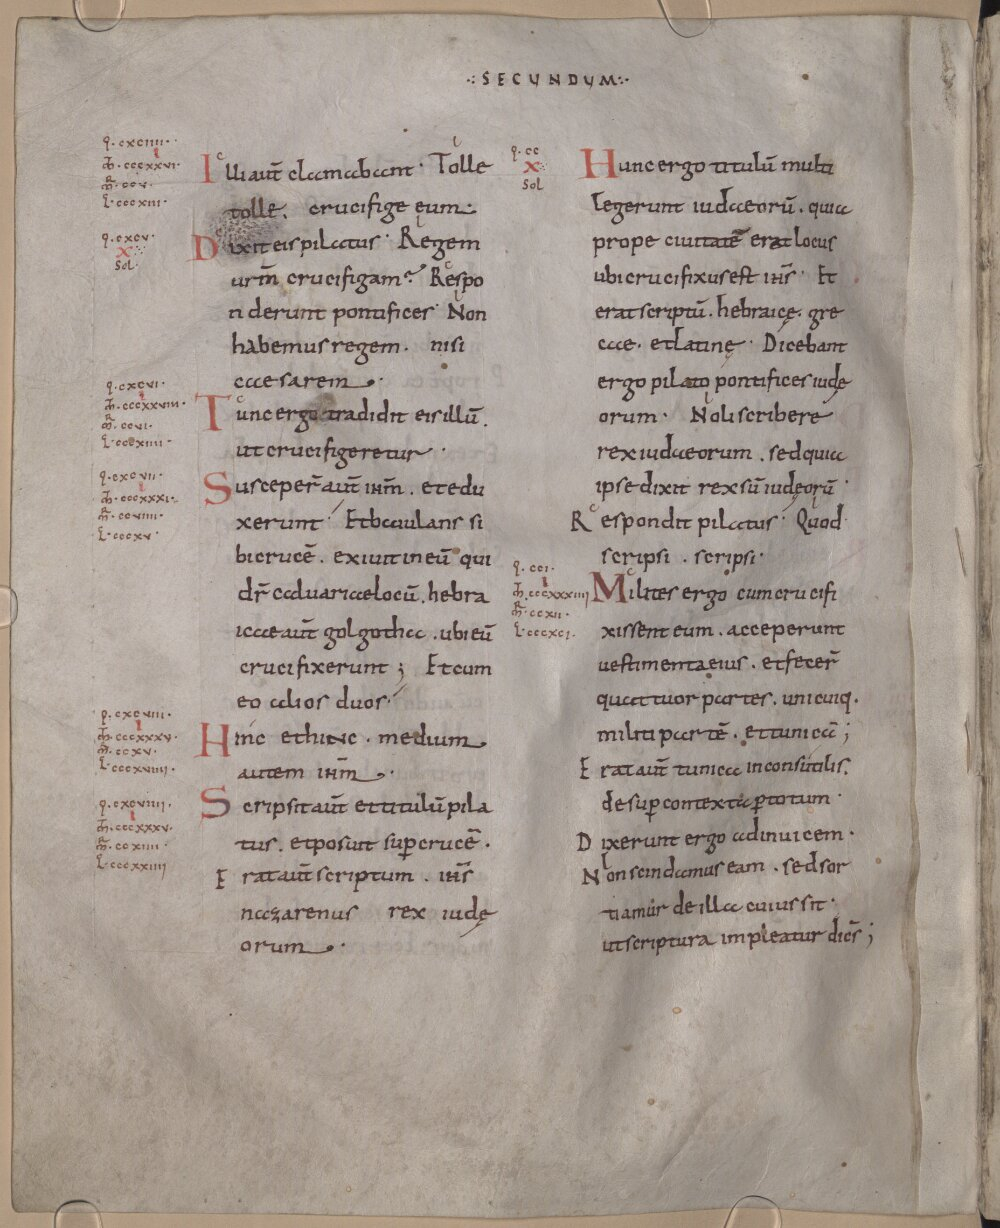 ·:SECUNDUM:·
q·cxciiii·
I
ꝫ·cccxxvi·
ꝳ·ccv·
ł·cccxiii·
Illi aut̄ clamabant· Tolle
tolle. crucifige eum·
q·cxcv·
X
Sol·
Dixit eis pilatus· Regem
ur̄m crucifigam? Respo
nderunt pontifices· Non
habemus regem· nisi
cęsarem·
q·cxcvi·
I
cccxxviii·
ccvi·
cccxiiii·
Tunc ergo tradidit eis illū.
ut crucifigeretur·
q·cxcvii·
I
cccxxxi·
ccviiii·
cccxv·
Susceper̄ aut̄ ih̄m. et edu
xerunt· Et baiulans si
bi crucē. exiuit in eū qui
dr̄ caluariae locū. hebra
icae aut̄ golgotha. ubi eū
crucifixerunt; Et cum
eo alios duos·
q·cxcviii·
I
cccxxxv·
ccxv·
cccxviiii·
Hinc et hinc. medium
autem ih̄m·
q·cxcviiii·
I
cccxxxv·
ccxiiii·
cccxxiiii
Scripsit aut̄ et titulū pila
tus. et posuit sup crucē·
Erat aut̄ scriptum. ih̄s
nazarenus rex iudę
orum·
q·cc
X
Sol
Hunc ergo titulū multi
legerunt iudaeorū. quia
prope ciuitatē erat locus
ubi crucifixus est ih̄s· Et
erat scriptū. hebraicę. gre
cae. et latinę· Dicebant
ergo pilato pontifices iudę
orum· Noli scribere
rex iudaeorum. sed quia
ipse dixit rex sū iudęorū·
Respondit pilatus· Quod
scripsi. scripsi·
q·cci·
I
cccxxxiiii
ccxii·
cccxxi·
Milites ergo cum crucifi
xissent eum. acceperunt
uestimenta eius. et fecer̄
quattuor partes. unicuiq·
militi partē. et tunicā;
Erat aut̄ tunica inconsutilis.
desup contexta ptotum·
Dixerunt ergo adinuicem·
Non scindamus eam. sed sor
tiamur de illa cuius sit·
ut scriptura impleatur dicēs;